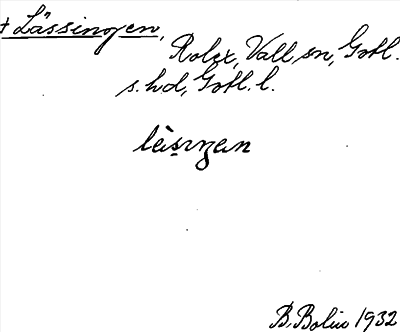 + Lässingen,
Rolex, Vall sn, Gotl.
s. hd, Gotl. l.
làsıŋen
B. Bolin 1932